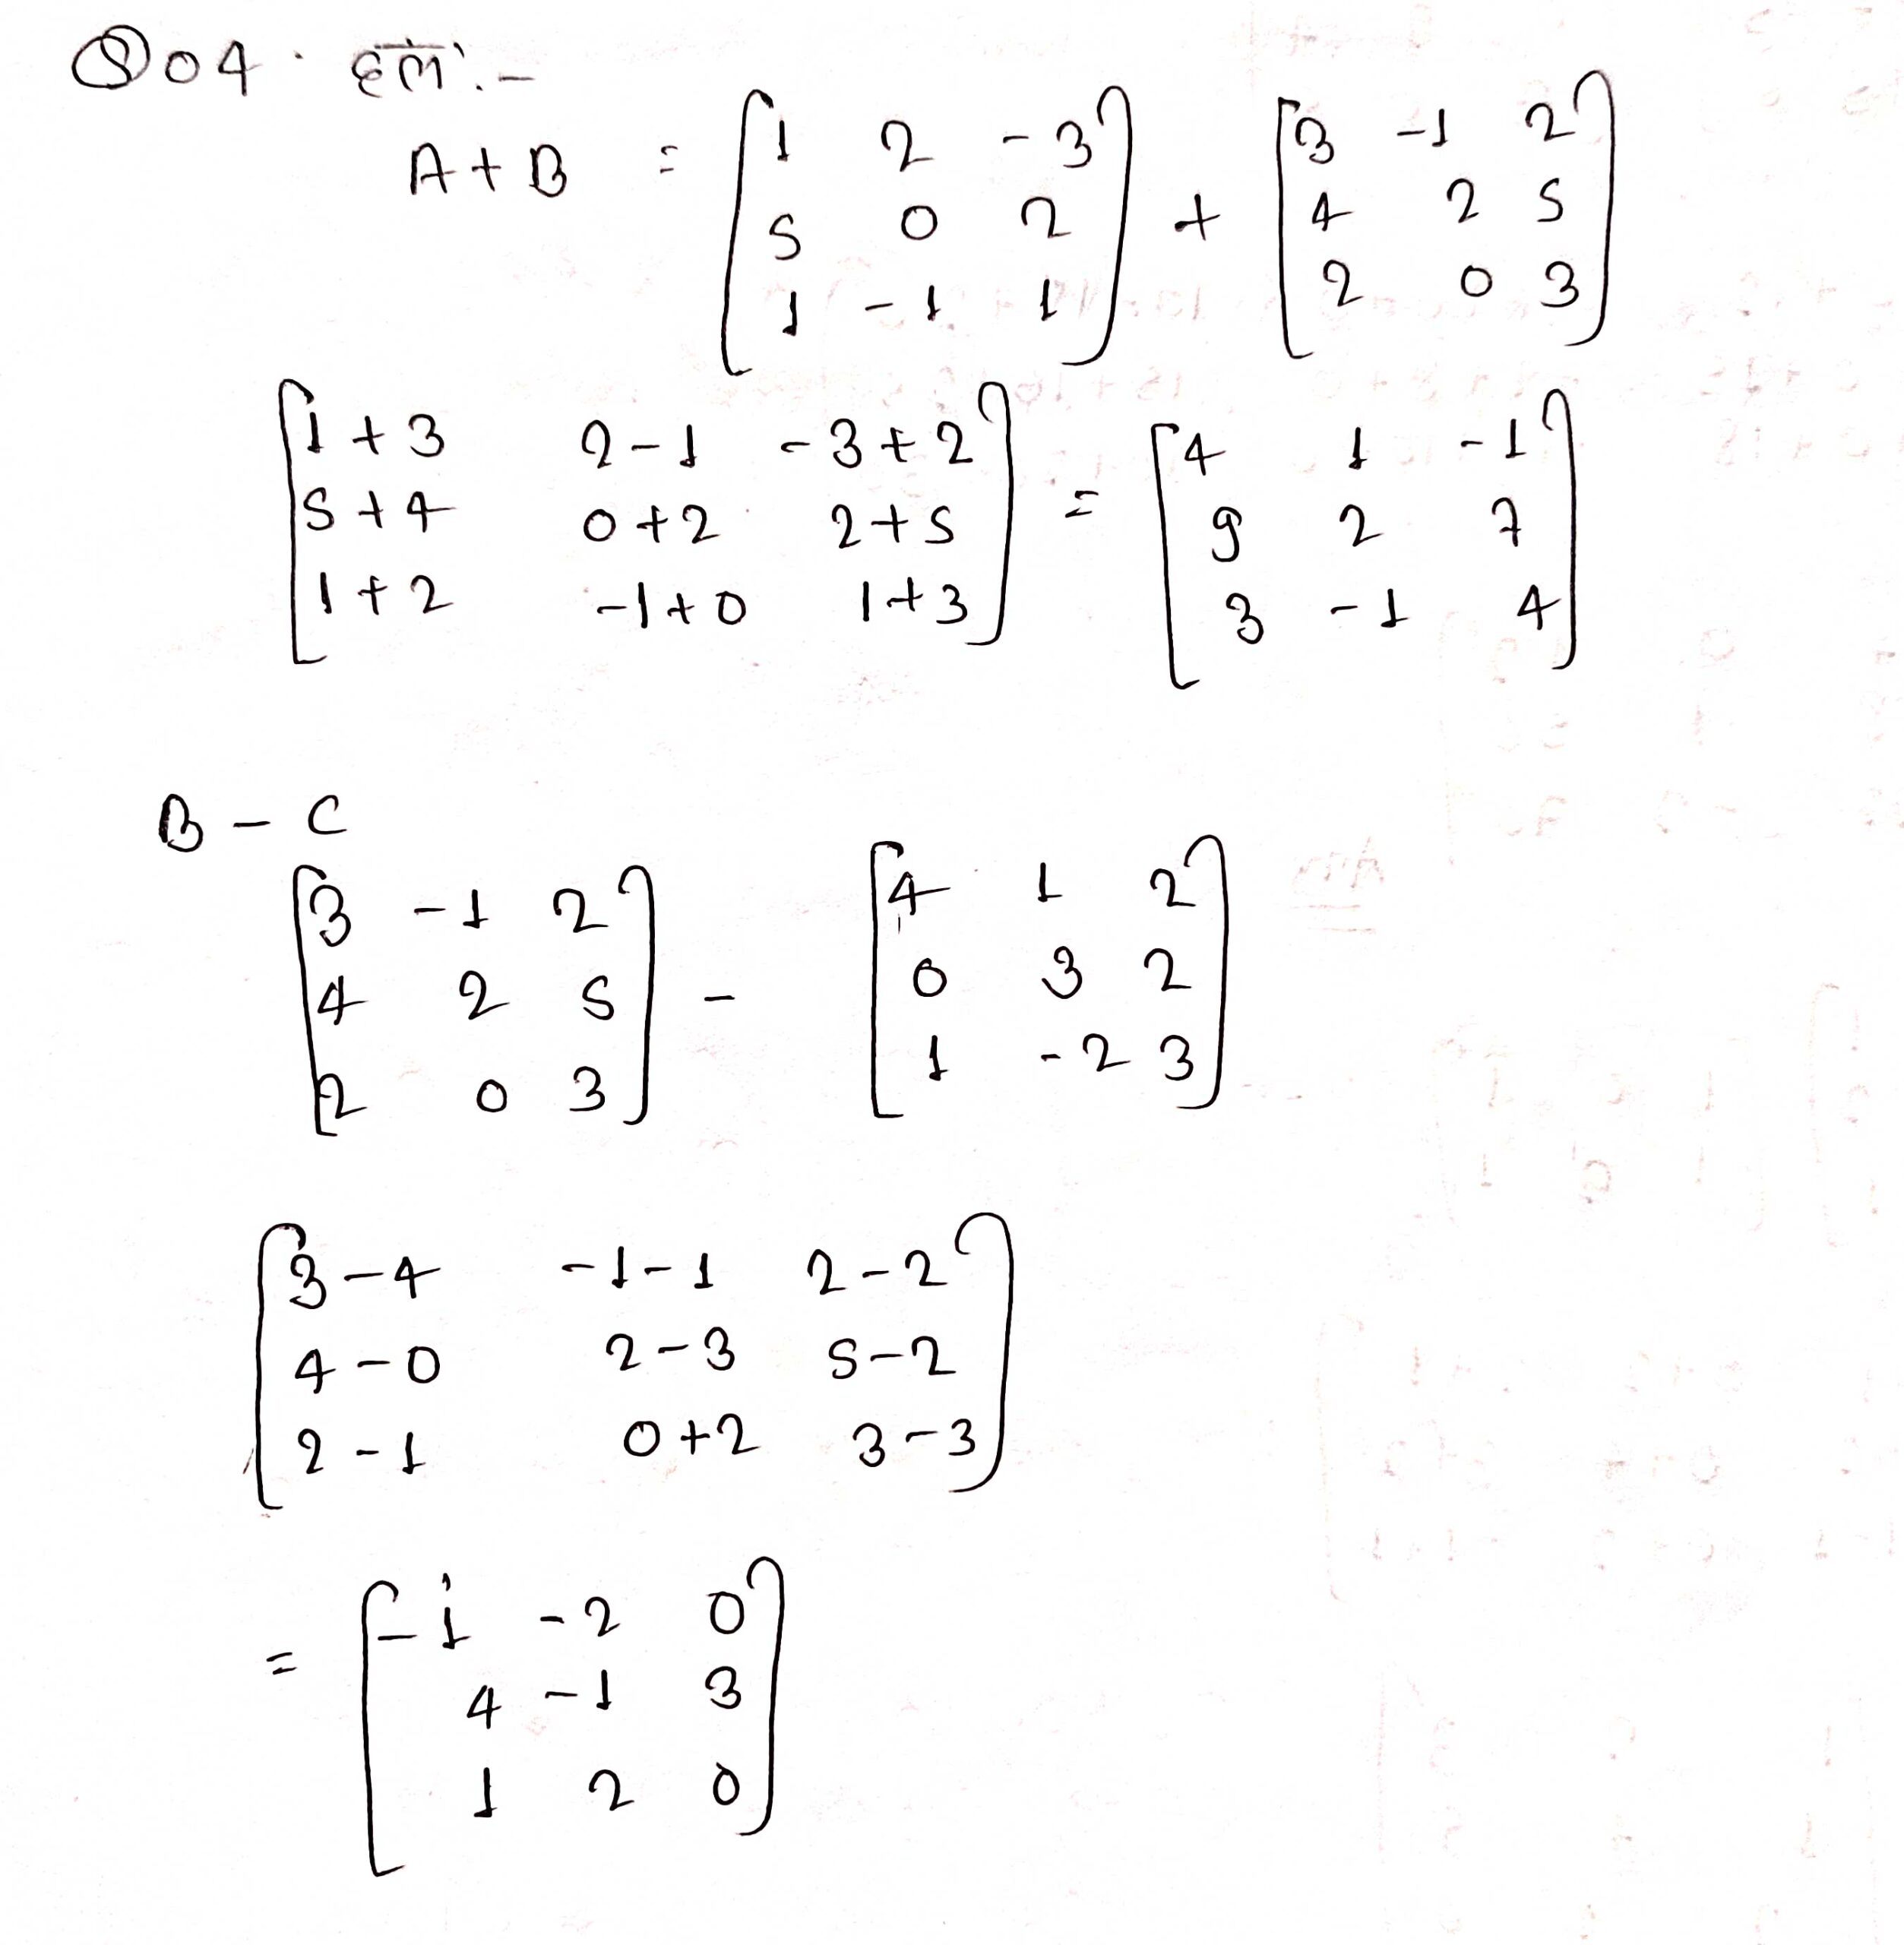 Q04. हल:-
A+B = [1 2 -3
5 0 2
1 -1 1] + [3 -1 2
4 2 5
2 0 3]
[1+3 2-1 -3+2
5+4 0+2 2+5
1+2 -1+0 1+3] = [4 1 -1
9 2 7
3 -1 4]
B - C
[3 -1 2
4 2 5
2 0 3] - [4 1 2
0 3 2
1 -2 3]
[3-4 -1-1 2-2
4-0 2-3 5-2
2-1 0+2 3-3]
= [-1 -2 0
4 -1 3
1 2 0]